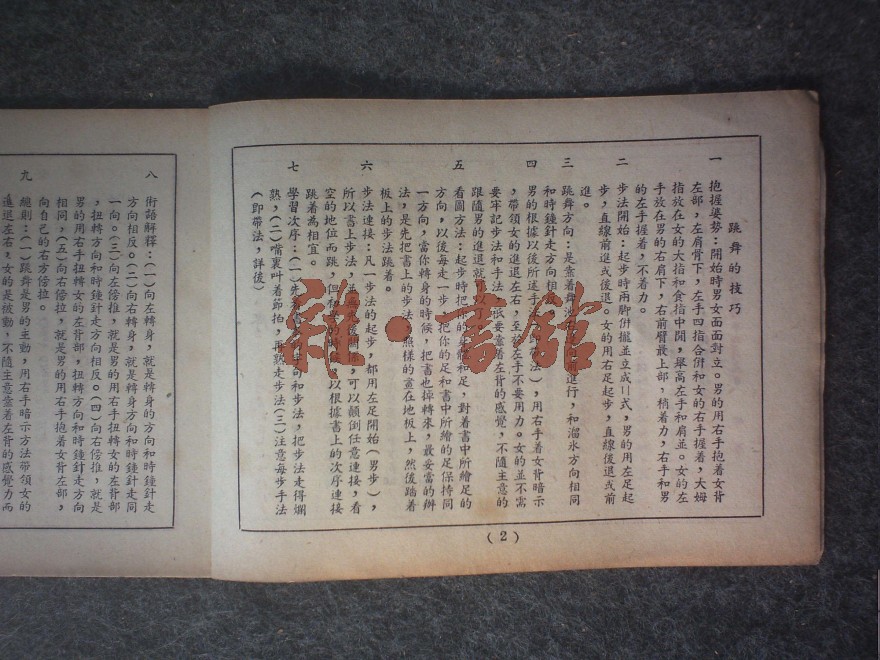 跳舞的技巧
一 抱握姿勢：開始時男女面面對立。男的用右手抱着女背
左部，左肩背下，左手四指合倂和女的右手握着，大姆
指放在女的大指和食指中間，舉高左手和肩並。女的左
手放在男的右肩下，右前臂最上部，稍着力，右手和男
的左手握着，不着力。
二 步法開始：起步時兩脚倂攏並立成||式，男的用左足起
步，直線前進或後退。女的用右足起步，直線後退或前
進。
三 跳舞方向：是靠着舞池右
進行，和溜水方向相同
和時鐘針走方向相反
四 男的根據以後所述手
法），用右手着女背暗示
，帶領女的進退左右，至於左手不要用力。女的並不需
要牢記步法和手法，祇要靠着左背的感覺，不隨主意的
跟隨男的進退就可以了
五 看圖方法：起步時把你的身體和足，對着書中所繪足的
方向，以後每走一步，把你的足和書中所繪的足保持同
一方向，當你轉身的時候，把書也掉轉來，最妥當的辦
法，是先把書上的步法照樣的畫在地板上，然後踏着
板上的步法跳着。
六 步法連接：凡一步法的起步，都用左足開始（男步），
所以書上步法，
可以顛倒任意連接，看
空的地位而跳，但
以根據書上的次序連接
跳着為相宜。
七 學習次序：(一)先
句和步法，把步法走得爛
熟，(二)嘴裏叫着節拍，再
走步法(三)注意每步手法
（即帶法，詳後）
(2)
八 術語解釋：(一)向左轉身，就是轉身的方向和時鐘針走
方向相反。(二)向右轉身，就是轉身方向和時鐘針走同
一向。(三)向左傍推，就是男的用右手扭轉女的左背部
，扭轉方向和時鐘針走方向相反。(四)向右傍推，就是
男的用右手扭轉女的左背部，扭轉方向和時鐘針走方向
相同，(五)向右傍拉，就是男的用右手抱着女背左部，
向自己的右方傍拉。
九 總則：(一)跳舞是男的主動，用右手暗示方法帶領女的
進退左右，女的是被動，不隨主意靠着左背的感覺力而
雜·書館